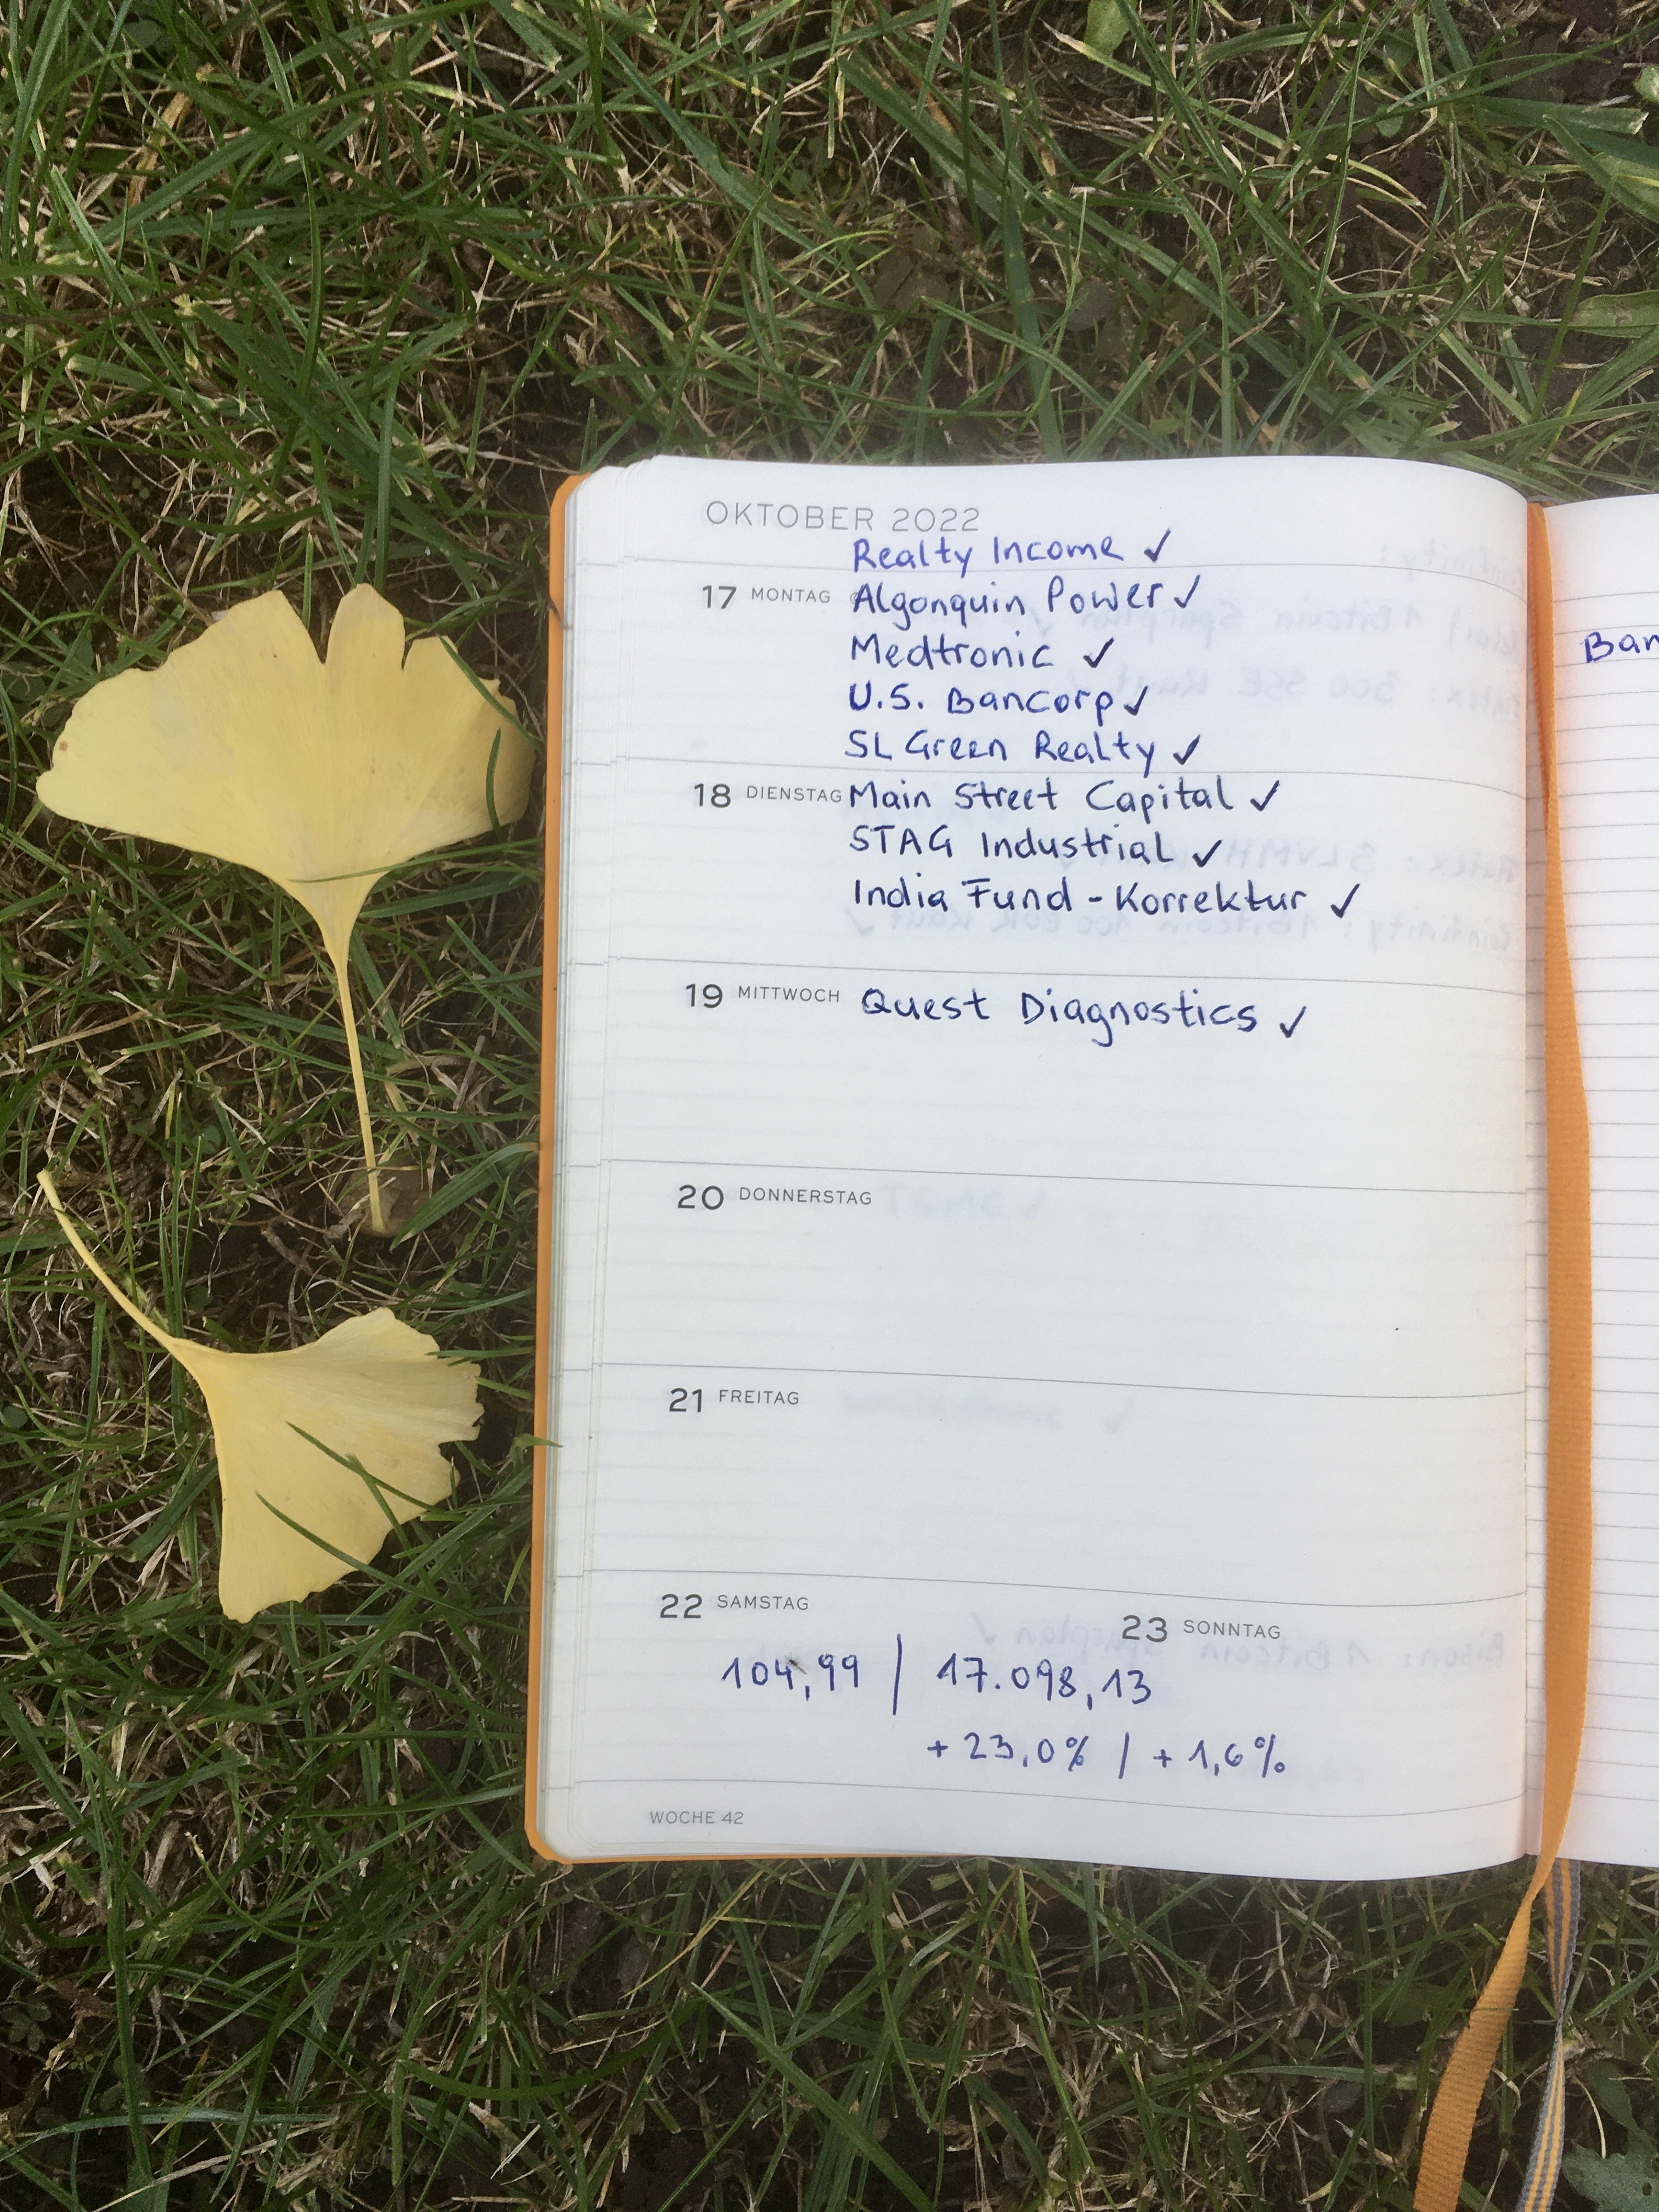 OKTOBER 2022
Realty Income ✓
17 MONTAG Algonquin Power ✓
Medtronic ✓
U.S. Bancorp ✓
SL Green Realty ✓
18 DIENSTAG Main Street Capital ✓
STAG Industrial ✓
India Fund - Korrektur ✓
19 MITTWOCH Quest Diagnostics ✓
20 DONNERSTAG
21 FREITAG
22 SAMSTAG
23 SONNTAG
104,99 | 17.098,13
+ 23,0% | + 1,6%
WOCHE 42
Ban